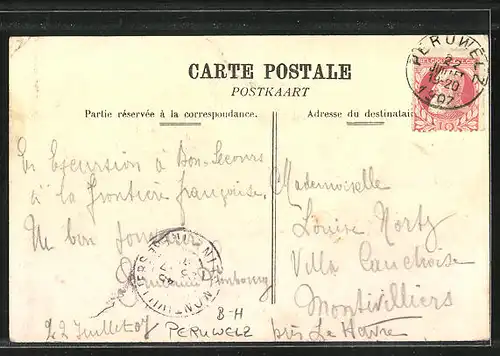 CARTE POSTALE
POSTKAART
Partie réservée à la correspondance.
Adresse du destinatai
PERUWELZ
22
JUILLET
19-20
1907
En Excursion à Bon-Secours
à la frontière française,
Un bon
22 Juillet 07
Mademoiselle
Louise
Villa Cauchoise
Montivilliers
près Le Havre
MONTIVILLIERS
B-H
PERUWELZ